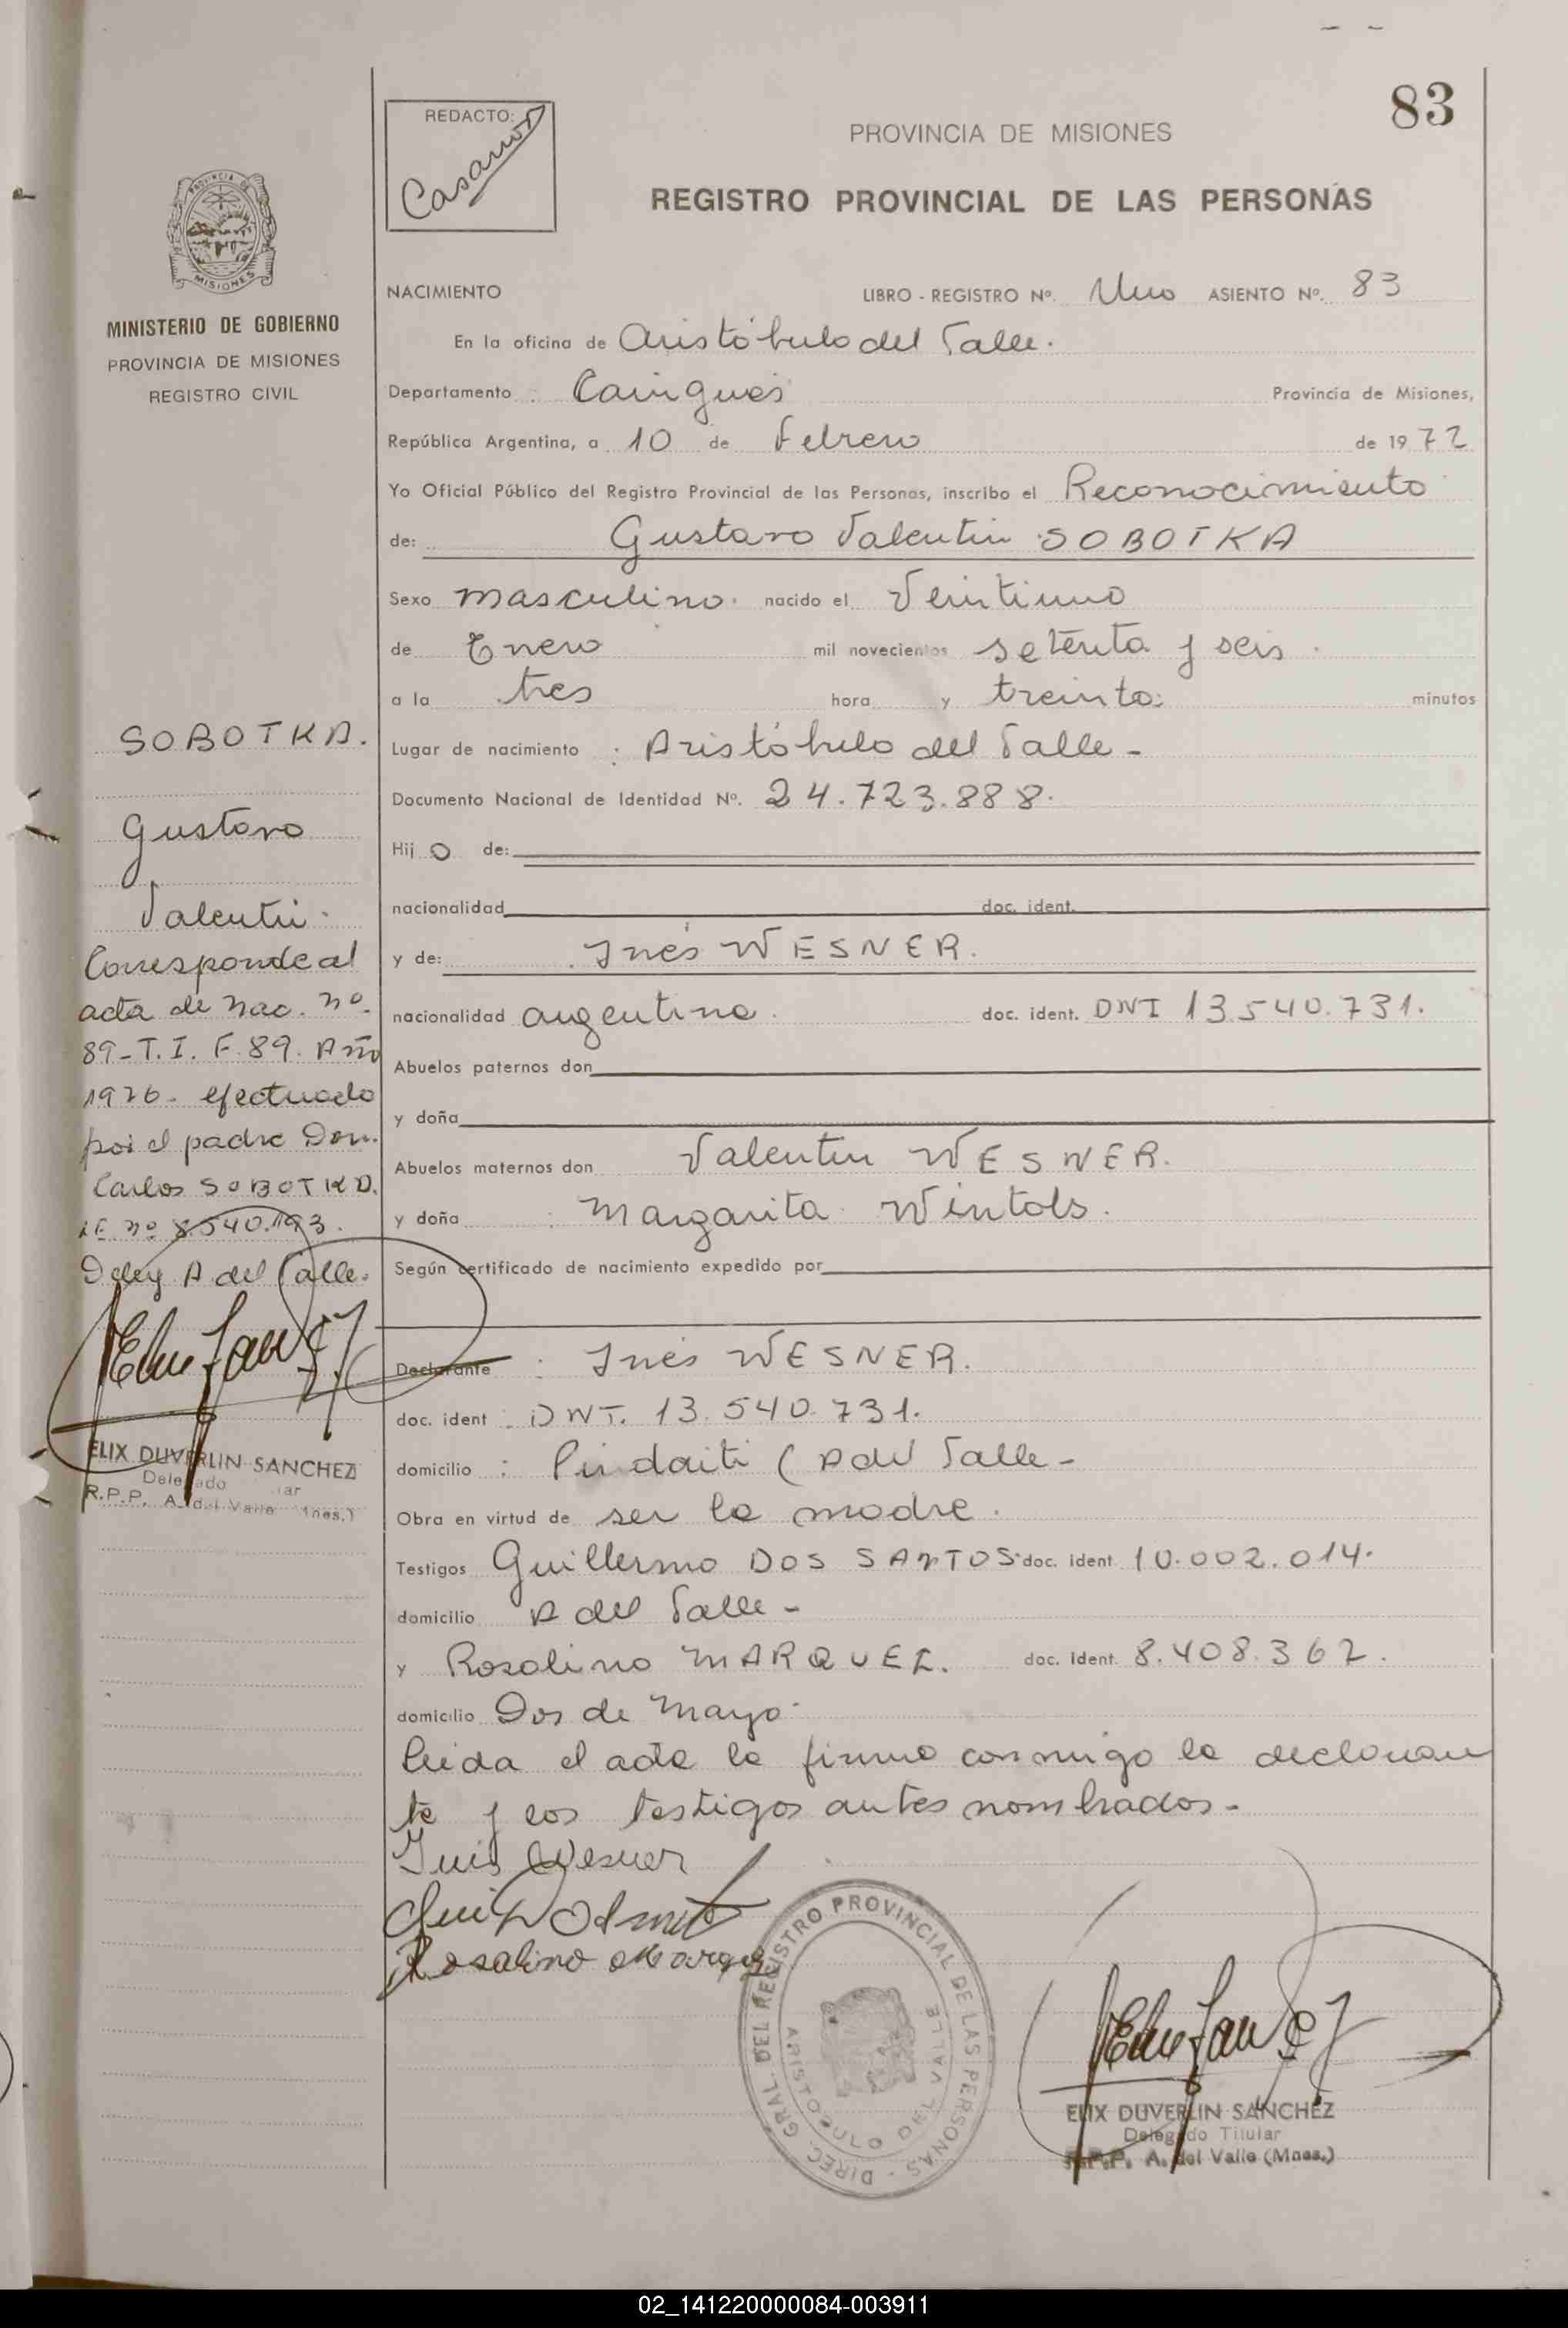 83
REDACTO:
PROVINCIA DE MISIONES
REGISTRO PROVINCIAL DE LAS PERSONAS
PROVINCIA DE
MISIONES
MINISTERIO DE GOBIERNO
PROVINCIA DE MISIONES
REGISTRO CIVIL
NACIMIENTO LIBRO - REGISTRO Nº. Uno ASIENTO Nº. 83
En la oficina de Aristóbulo del Valle.
Departamento : Cainguás Provincia de Misiones,
República Argentina, a 10 de Febrero de 1972
Yo Oficial Público del Registro Provincial de las Personas, inscribo el Reconocimiento
de: Gustavo Valentin SOBOTKA
Sexo masculino. nacido el Veintiuno
de Enero mil novecientos setenta y seis.
a la tres hora y treinta: minutos
Lugar de nacimiento : Aristóbulo del Valle -
Documento Nacional de Identidad Nº. 24.723.888.
Hij o de:
nacionalidad doc. ident.
y de: Inés WESNER.
nacionalidad argentina. doc. ident. DNI 13.540.731.
Abuelos paternos don
y doña
Abuelos maternos don Valentin WESNER.
y doña : Margarita Wintols.
Según certificado de nacimiento expedido por
Declarante : Inés WESNER.
doc. ident : DNI. 13.540.731.
domicilio : Pindaiti ( A del Valle -
Obra en virtud de ser la madre.
Testigos Guillermo DOS SANTOS. doc. ident. 10.002.014.
domicilio A del Valle -
y Rosalino MARQUEZ. doc. ident. 8.408.362.
domicilio Dos de Mayo.
leida el acta la firma conmigo la declaran
te y los testigos antes nombrados.-
Inés Wesner
Rosalino Marquez
SOBOTKA.
Gustavo
Valentin.
Corresponde al
acta de Nac. nº.
89-T.I. F.89. Año
1976. efectuado
por el padre Don.
Carlos SOBOTKA.
LE nº 8.540.193.
A del Valle.
ELIX DUVERLIN SANCHEZ
Delegado
R.P.P. A. del Valle (Mnes.)
DIREC. GRAL. DEL REGISTRO PROVINCIAL DE LAS PERSONAS
ARISTOBULO DEL VALLE
ELIX DUVERLIN SANCHEZ
Delegado Titular
R.P.P. A. del Valle (Mnes.)
02_141220000084-003911